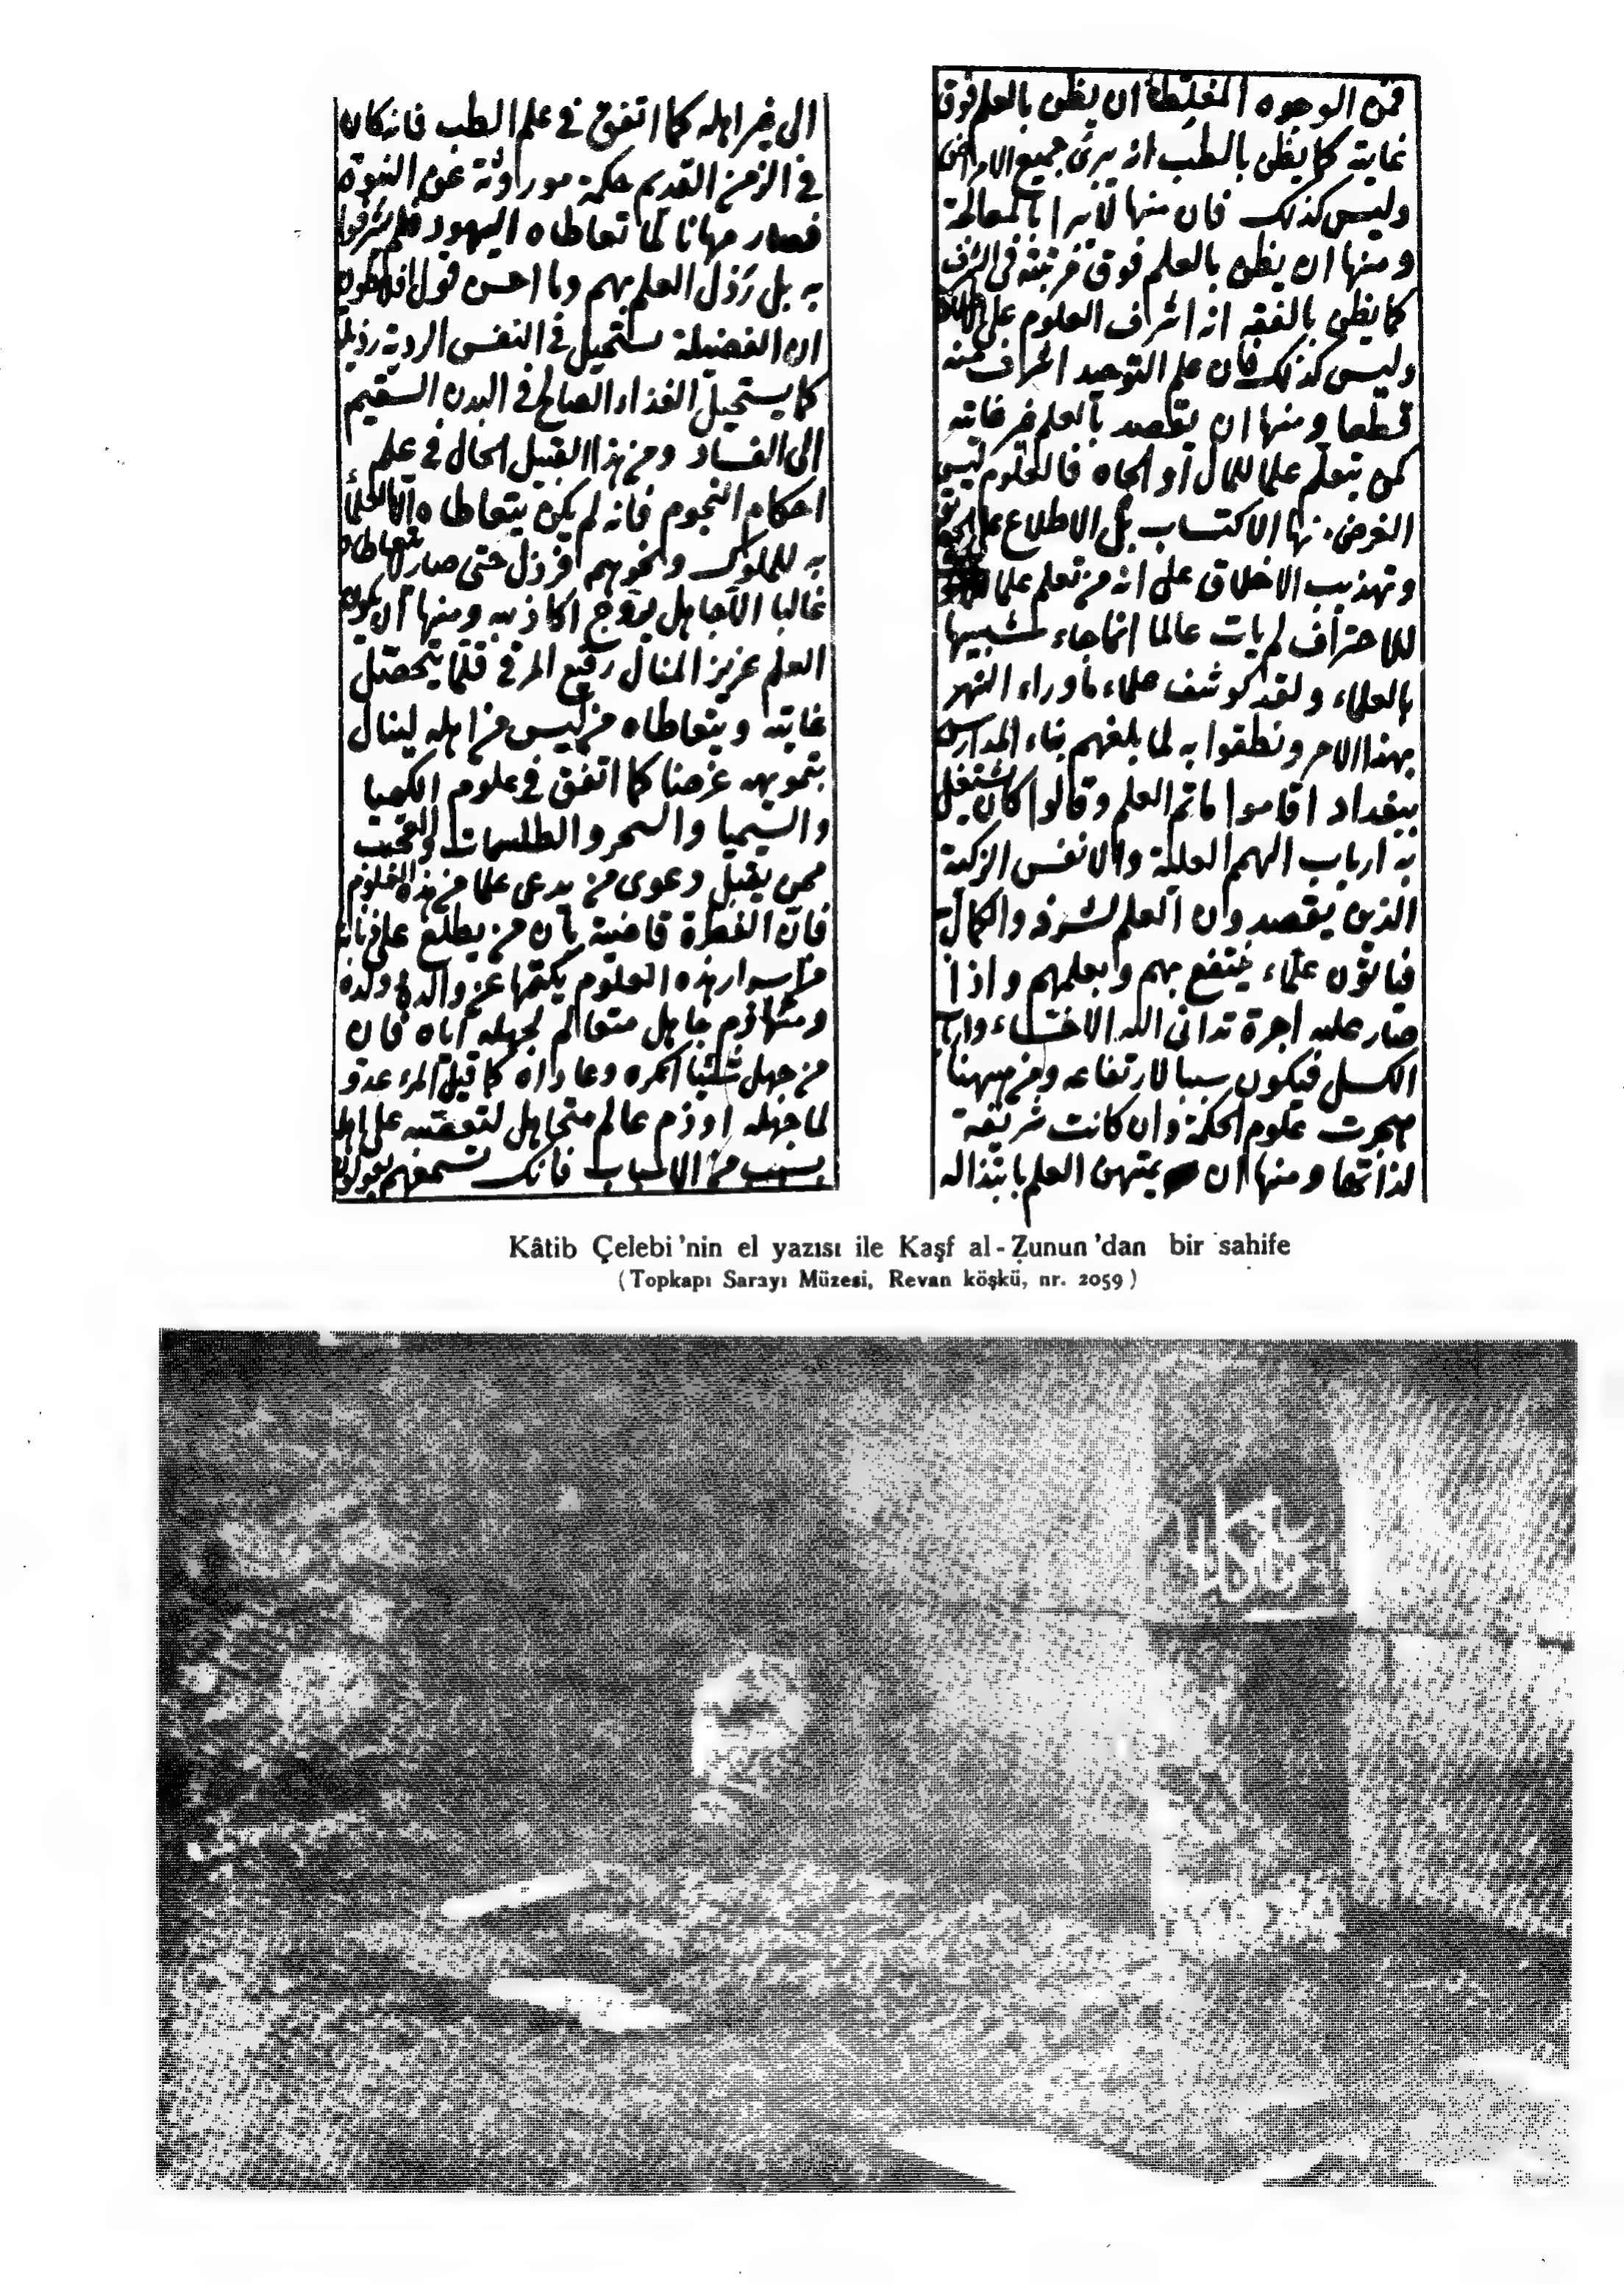 فمن الوجوه المغلطة ان يظن بالعلم فوق
غايته كما يظن بالطب انه يبرئ جميع الامراض
وليس كذلك فان منها لا يبرأ بالمعالجة
ومنها ان يظن بالعلم فوق مرتبته فى الشرف
كما يظن بالفقه انه اشرف العلوم على
وليس كذلك فان علم التوحيد اشرف منه
قطعا ومنها ان يقصد بالعلم غير غايته
كمن يتعلم علما للمال او الجاه فالعلوم ليس
الغرض منها الاكتساب بل الاطلاع على
وتهذيب الاخلاق على انه من تعلم علما
للاحتراف لم يات عالما انما جاء شبيها
بالعلماء ولقد كوشف علماء ماوراء النهر
بهذا الامر ونطقوا به لما بلغهم بناء المدارس
ببغداد اقاموا ماتم العلم وقالوا كان يشتغل
به ارباب الهمم العلية والانفس الزكية
الذين يقصدون العلم لشرفه والكمال به
فياتون علماء ينتفع بهم وبعلمهم واذا
صار عليه اجرة تدانى اليه الاخساء وارباب
الكسل فيكون سببا لارتفاعه ومن ههنا
هجرت علوم الحكمة وان كانت شريفة
لذاتها ومنها ان يمتهن العلم بابتذاله
الى غير اهله كما اتفق فى علم الطب فانه كان
فى الزمن القديم حكمة موروثة عن النبوة
فصار مهانا لما تعاطاه اليهود فلم يشرفوا
به بل رذل العلم بهم وما احسن قول افلاطون
ان الفضيلة تستحيل فى النفس الردية رذيلة
كما يستحيل الغذاء الصالح فى البدن السقيم
الى الفساد ومن هذا القبيل الحال فى علم
احكام النجوم فانه لم يكن يتعاطاه الا العلماء
به للملوك ونحوهم فرذل حتى صار لا يتعاطاه
غالبا الا جاهل يروج اكاذيبه ومنها ان يكون
العلم عزيز المنال رفيع المرقى قلما يتحصل
غايته ويتعاطاه من ليس من اهله لينال
بتمويهه غرضا كما اتفق فى علوم الكيميا
والسيميا والسحر والطلسمات والعجب
ممن يقبل دعوى من يدعى علما من هذه العلوم
فان الفطرة قاضية بان من يطلع على ذبابة
من اسرار هذه العلوم يكتمها عن والده وولده
ومنها ذم جاهل متعالم لجهله اياه فان
من جهل شيئا انكره وعاداه كما قيل المرء عدو
لما جهله او ذم عالم متجاهل لتعصبه على اهله
بسبب من الاسباب فانك تسمعهم يقولون
Kâtib Çelebi'nin el yazısı ile Kaşf al-Ẓunun'dan bir sahife
(Topkapı Sarayı Müzesi, Revan köşkü, nr. 2059)